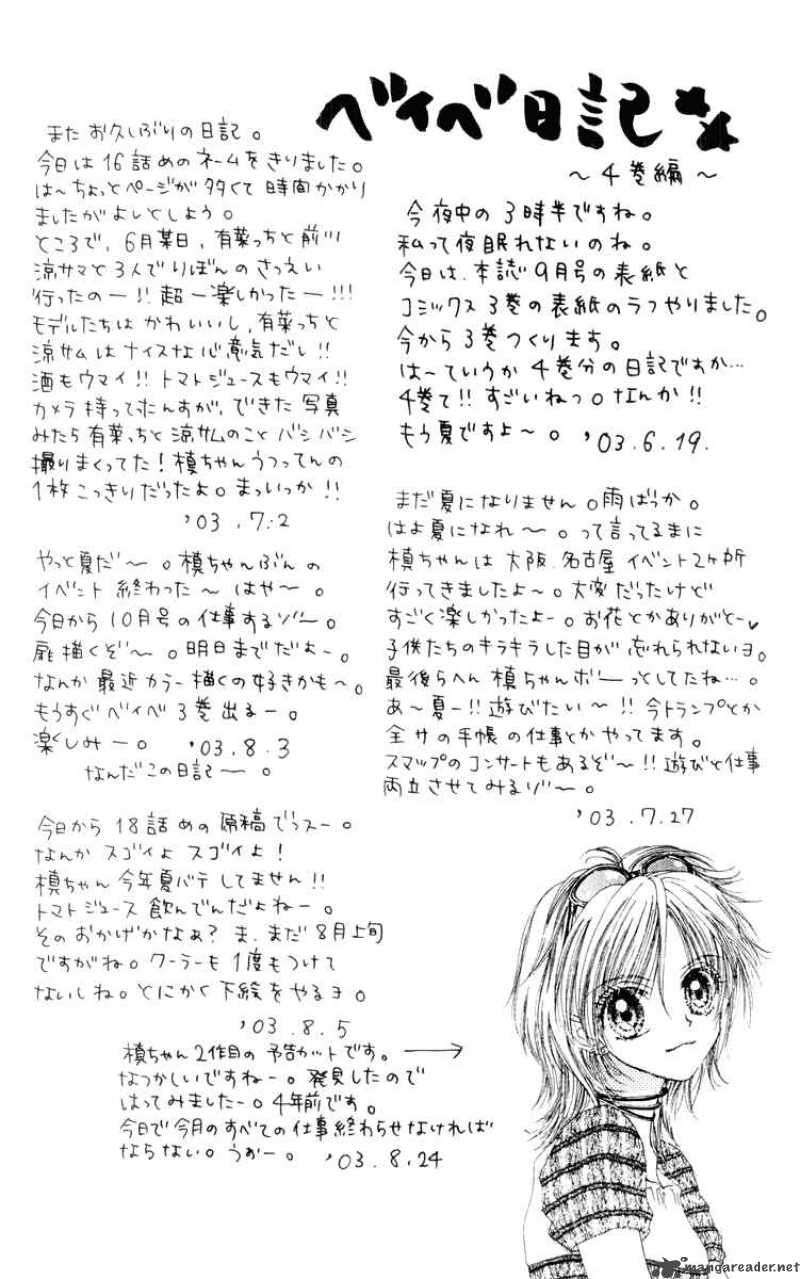 ベイベ日記
~4巻編~
今夜中の3時半ですね。
私って夜眠れないのね。
今日は、本誌9月号の表紙と
コミックス3巻の表紙のラフやりました。
今から3巻つくります。
は~ていうか4巻分の日記ですか…
4巻て!!すごいねっ。なんか!!
もう夏ですよ~。'03.6.19.
また お久しぶりの日記。
今日は16話めのネームをきりました。
は~ちょっとページが多くて時間かかり
ましたがよしとしよう。
ところで、6月某日、有菜っちと前川
涼サマと3人でりぼんのさつえい
行ったのー!!超ー楽しかったー!!!
モデルたちはかわいいし、有菜っちと
涼サムはナイスな心意気だし!!
酒もウマイ!!トマトジュースもウマイ!!
カメラ持ってたんすが、できた写真
みたら有菜っちと涼サムのことバシバシ
撮りまくってた!槙ちゃんうつってんの
1枚こっきりだったよ。まっいっか!!
'03.7.2
まだ夏になりません。雨ばっか。
はよ夏になれ~。って言ってるまに
槙ちゃんは大阪、名古屋イベント2ヶ所
行ってきましたよ~。大変だったけど
すごく楽しかったよー。お花とかありがとー♥
子供たちのキラキラした目が忘れられないヨ。
最後らへん槙ちゃんボーっとしてたね…。
あ~夏ー!!遊びたい~!!今トランプとか
全サの手帳の仕事とかやってます。
スマップのコンサートもあるぞ~!!遊びと仕事
両立させてみるゾ~。
'03.7.27
やっと夏だ~。槙ちゃんぶんの
イベント終わった~はや~。
今日から10月号の仕事するゾ~。
扉描くぞ~。明日までだよー。
なんか最近カラー描くの好きかも~。
もうすぐベイベ3巻出るー。
楽しみー。'03.8.3
なんだこの日記ー。
今日から18話めの原稿でっスー。
なんかスゴイよスゴイよ!
槙ちゃん今年夏バテしてません!!
トマトジュース飲んでんだよねー。
そのおかげかなぁ?ま、まだ8月上旬
ですがね。クーラーも1度もつけて
ないしね。とにかく下絵をやるヨ。
'03.8.5
槙ちゃん2作目の予告カットです。→
なつかしいですねー。発見したので
はってみましたー。4年前です。
今日で今月のすべての仕事終わらせなければ
ならない。うおー。'03.8.24
mangareader.net